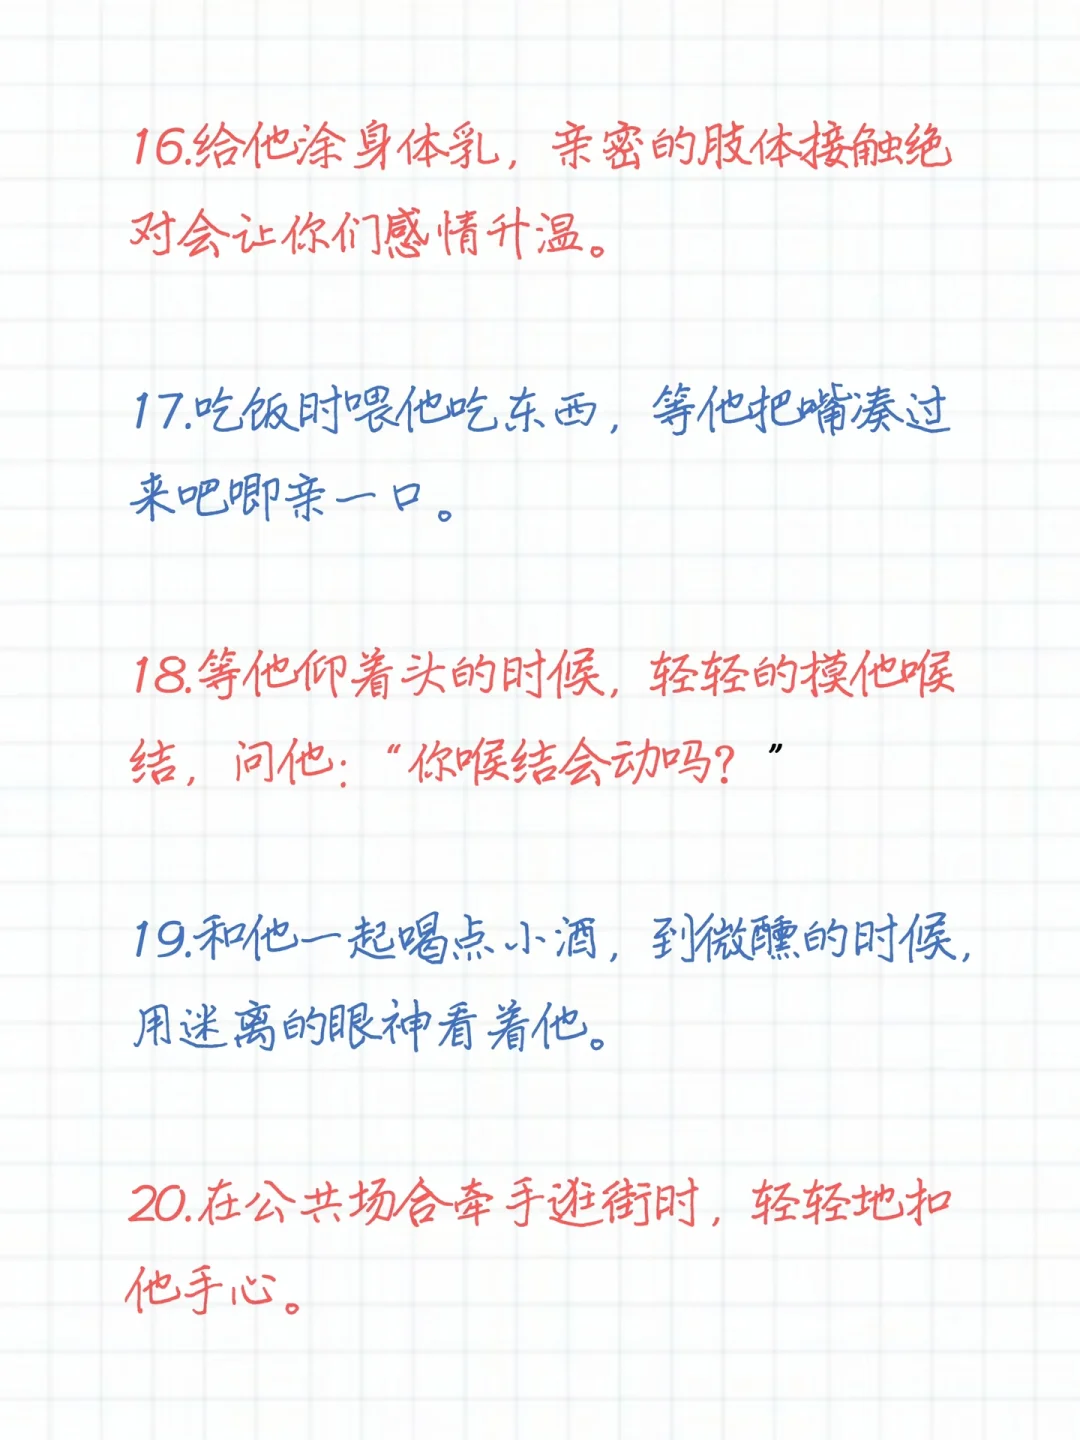 16.给他涂身体乳，亲密的肢体接触绝
对会让你们感情升温。
17.吃饭时喂他吃东西，等他把嘴凑过
来吧唧亲一口。
18.等他仰着头的时候，轻轻的摸他喉
结，问他：“你喉结会动吗？”
19.和他一起喝点小酒，到微醺的时候，
用迷离的眼神看着他。
20.在公共场合牵手逛街时，轻轻地扣
他手心。